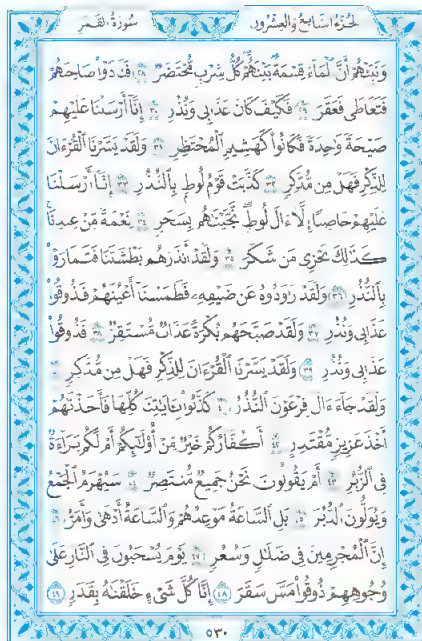 الجزء السابع والعشرون سورة القمر
وَنَبِّئْهُمْ أَنَّ ٱلْمَآءَ قِسْمَةٌۢ بَيْنَهُمْ كُلُّ شِرْبٍ مُّحْتَضَرٌ ٢٨ فَنَادَوْا۟ صَاحِبَهُمْ
فَتَعَاطَىٰ فَعَقَرَ ٢٩ فَكَيْفَ كَانَ عَذَابِى وَنُذُرِ ٣٠ إِنَّآ أَرْسَلْنَا عَلَيْهِمْ
صَيْحَةً وَٰحِدَةً فَكَانُوا۟ كَهَشِيمِ ٱلْمُحْتَظِرِ ٣١ وَلَقَدْ يَسَّرْنَا ٱلْقُرْءَانَ
لِلذِّكْرِ فَهَلْ مِن مُّدَّكِرٍ ٣٢ كَذَّبَتْ قَوْمُ لُوطٍۭ بِٱلنُّذُرِ ٣٣ إِنَّآ أَرْسَلْنَا
عَلَيْهِمْ حَاصِبًا إِلَّآ ءَالَ لُوطٍ نَّجَّيْنَٰهُم بِسَحَرٍ ٣٤ نِّعْمَةً مِّنْ عِندِنَا
كَذَٰلِكَ نَجْزِى مَن شَكَرَ ٣٥ وَلَقَدْ أَنذَرَهُم بَطْشَتَنَا فَتَمَارَوْا۟
بِٱلنُّذُرِ ٣٦ وَلَقَدْ رَٰوَدُوهُ عَن ضَيْفِهِۦ فَطَمَسْنَآ أَعْيُنَهُمْ فَذُوقُوا۟
عَذَابِى وَنُذُرِ ٣٧ وَلَقَدْ صَبَّحَهُم بُكْرَةً عَذَابٌ مُّسْتَقِرٌّ ٣٨ فَذُوقُوا۟
عَذَابِى وَنُذُرِ ٣٩ وَلَقَدْ يَسَّرْنَا ٱلْقُرْءَانَ لِلذِّكْرِ فَهَلْ مِن مُّدَّكِرٍ ٤٠
وَلَقَدْ جَآءَ ءَالَ فِرْعَوْنَ ٱلنُّذُرُ ٤١ كَذَّبُوا۟ بِـَٔايَٰتِنَا كُلِّهَا فَأَخَذْنَٰهُمْ
أَخْذَ عَزِيزٍ مُّقْتَدِرٍ ٤٢ أَكُفَّارُكُمْ خَيْرٌ مِّنْ أُو۟لَٰٓئِكُمْ أَمْ لَكُم بَرَآءَةٌ
فِى ٱلزُّبُرِ ٤٣ أَمْ يَقُولُونَ نَحْنُ جَمِيعٌ مُّنتَصِرٌ ٤٤ سَيُهْزَمُ ٱلْجَمْعُ
وَيُوَلُّونَ ٱلدُّبُرَ ٤٥ بَلِ ٱلسَّاعَةُ مَوْعِدُهُمْ وَٱلسَّاعَةُ أَدْهَىٰ وَأَمَرُّ ٤٦
إِنَّ ٱلْمُجْرِمِينَ فِى ضَلَٰلٍ وَسُعُرٍ ٤٧ يَوْمَ يُسْحَبُونَ فِى ٱلنَّارِ عَلَىٰ
وُجُوهِهِمْ ذُوقُوا۟ مَسَّ سَقَرَ ٤٨ إِنَّا كُلَّ شَىْءٍ خَلَقْنَٰهُ بِقَدَرٍ ٤٩
٥٣٠